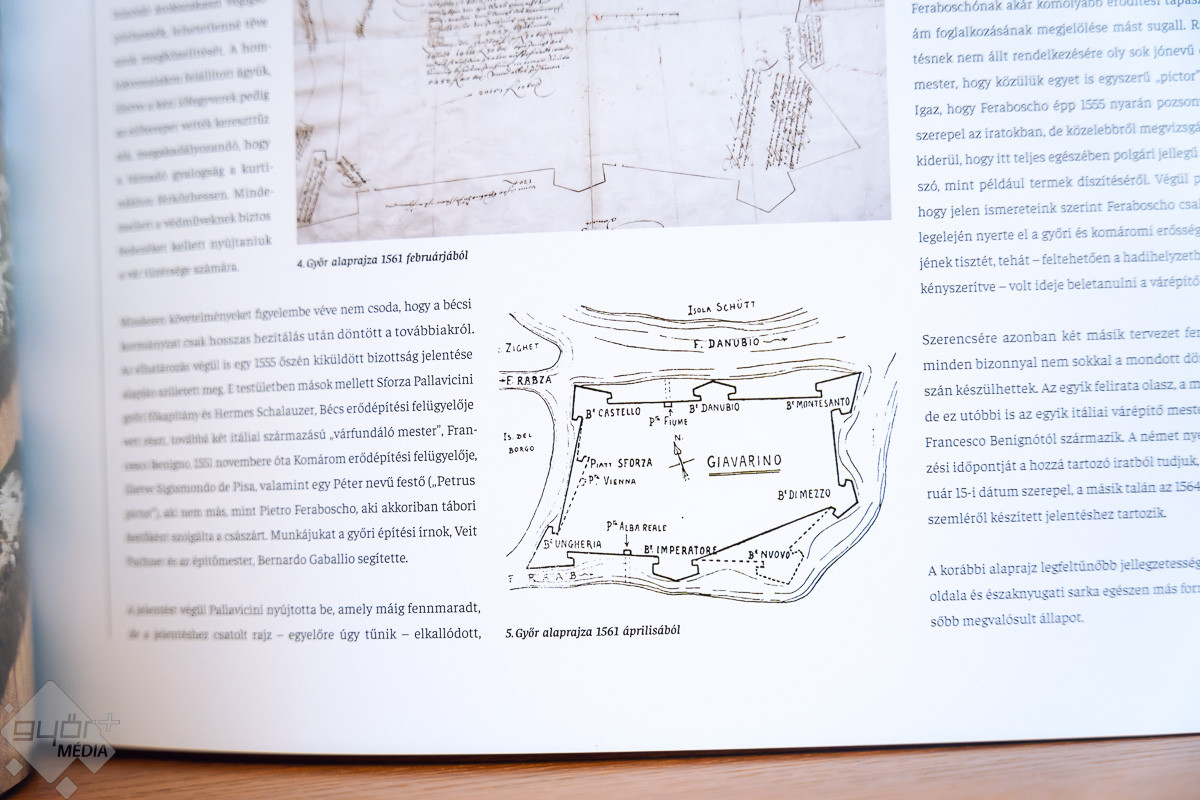 tésbeli
lehetetlenné téve
megközelítését. A hom-
felállított ágyúk,
lőfegyverek pedig
vették kereszttűz
megakadályozandó, hogy
a támadó gyalogság a kurti-
férkőzhessen. Minde-
mellett a védműveknek biztos
fedezéket kellett nyújtaniuk
a vár tüzérsége számára.
4. Győr alaprajza 1561 februárjából
Mindezen követelményeket figyelembe véve nem csoda, hogy a bécsi
kormányzat csak hosszas hezitálás után döntött a továbbiakról.
Az elhatározás végül is egy 1555 őszén kiküldött bizottság jelentése
alapján született meg. E testületben mások mellett Sforza Pallavicini
győri főkapitány és Hermes Schalauzer, Bécs erődépítési felügyelője
vett részt, továbbá két itáliai származású „várfundáló mester”, Fran-
cesco Benigno, 1551 novembere óta Komárom erődépítési felügyelője,
illetve Sigismondo de Pisa, valamint egy Péter nevű festő („Petrus
pictor”), aki nem más, mint Pietro Feraboscho, aki akkoriban tábori
festőként szolgálta a császárt. Munkájukat a győri építési írnok, Veit
és az építőmester, Bernardo Gaballio segítette.
A jelentést végül Pallavicini nyújtotta be, amely máig fennmaradt,
de a jelentéshez csatolt rajz – egyelőre úgy tűnik – elkallódott,
ISOLA SCHÜTT
F. DANUBIO
ZIGHET
F. RABZA
IS. DEL
BORGO
Bᵗ CASTELLO
Pᵗᵃ FIUME
Bᵗ DANUBIO
Bᵗ MONTESANTO
N.
PIATT SFORZA
GIAVARINO
Pᵗᵃ VIENNA
Bᵗ DI MEZZO
Pᵗᵃ ALBA REALE
Bᵗ UNGHERIA
Bᵗ IMPERATORE
Bᵗ NUOVO
F. RAAB
5. Győr alaprajza 1561 áprilisából
Feraboschónak akár komolyabb erődítési tapasz
ám foglalkozásának megjelölése mást sugall. R
tésnek nem állt rendelkezésére oly sok jónevű
mester, hogy közülük egyet is egyszerű „pictor”
Igaz, hogy Feraboscho épp 1555 nyarán pozson
szerepel az iratokban, de közelebbről megvizsgá
kiderül, hogy itt teljes egészében polgári jellegű
szó, mint például termek díszítéséről. Végül p
hogy jelen ismereteink szerint Feraboscho csa
legelején nyerte el a győri és komáromi erősség
jének tisztét, tehát – feltehetően a hadihelyzetb
kényszerítve – volt ideje beletanulni a várépítő
Szerencsére azonban két másik tervezet fen
minden bizonnyal nem sokkal a mondott dö
szán készülhettek. Az egyik felirata olasz, a m
de ez utóbbi is az egyik itáliai várépítő meste
Francesco Benignótól származik. A német nye
zési időpontját a hozzá tartozó iratból tudjuk,
ruár 15-i dátum szerepel, a másik talán az 1564
szemléről készített jelentéshez tartozik.
A korábbi alaprajz legfeltűnőbb jellegzetesség
oldala és északnyugati sarka egészen más for
sőbb megvalósult állapot.
győr+
MÉDIA